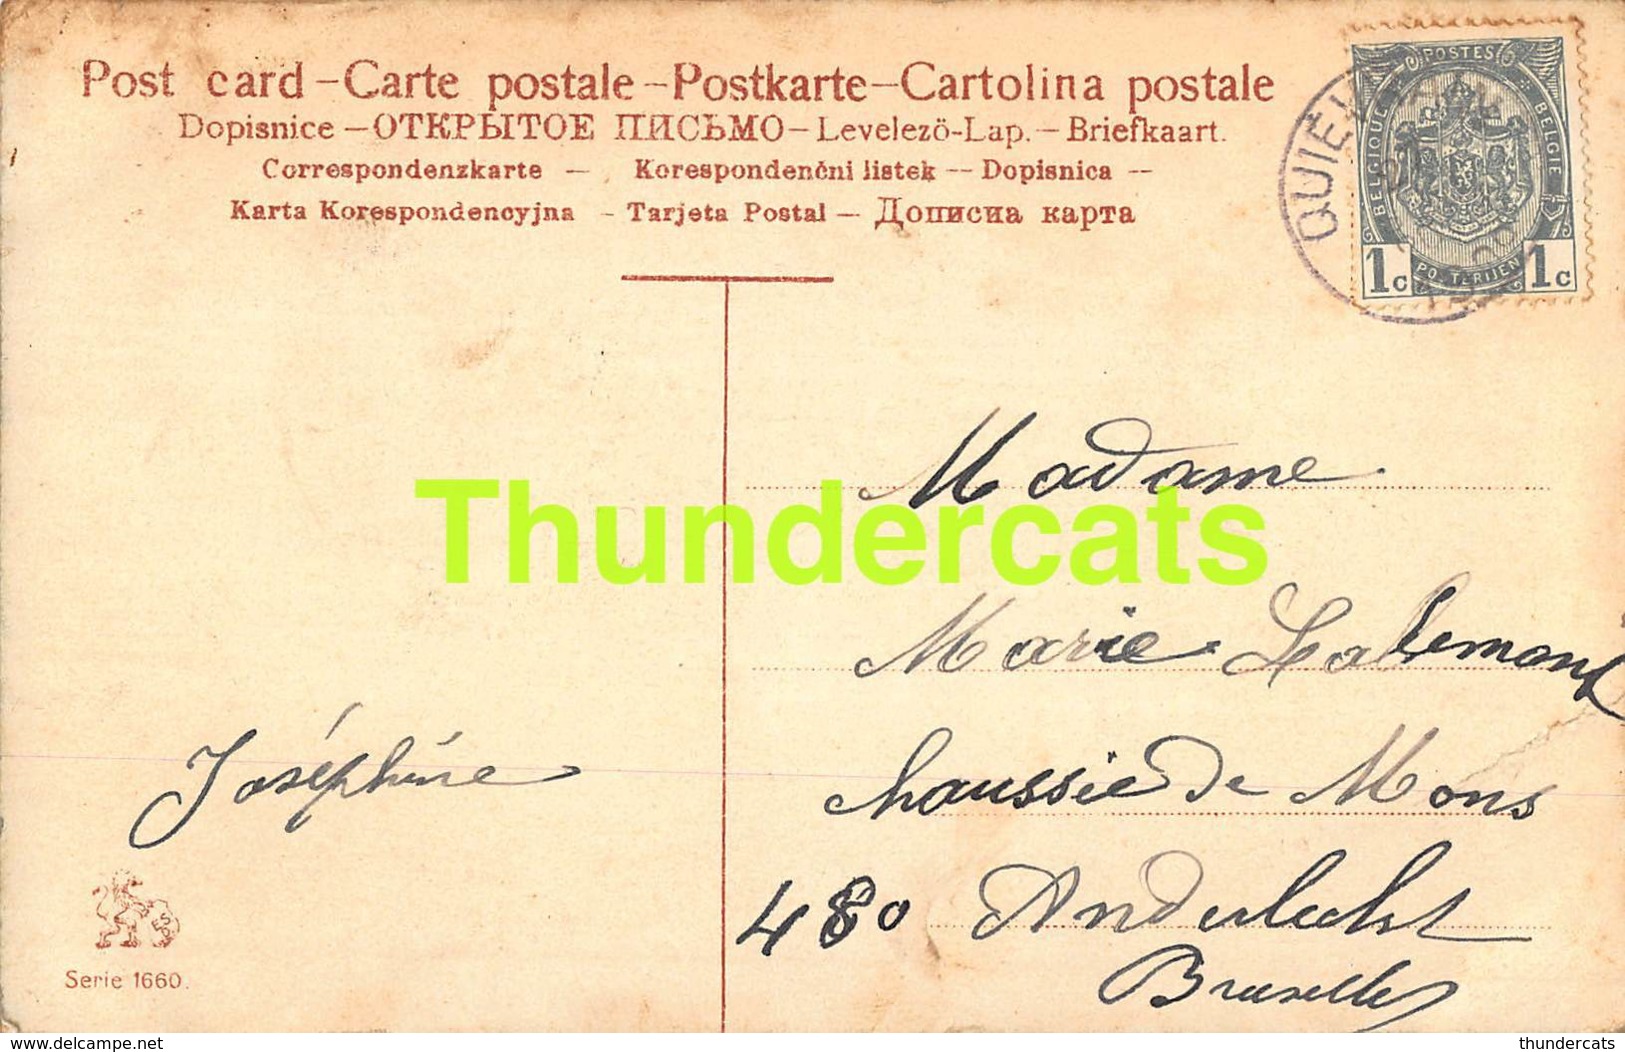 Post card – Carte postale – Postkarte – Cartolina postale
Dopisnice – ОТКРЫТОЕ ПИСЬМО – Levelezö-Lap. – Briefkaart.
Correspondenzkarte – Korespondenčni listek -- Dopisnica --
Karta Korespondencyjna - Tarjeta Postal – Дописна карта
POSTES
BELGIQUE
BELGIE
POSTERIJEN
1c 1c
Madame
Thundercats
Marie Lallemant
Joséphine
chaussie de Mons
480 Anderlecht
Bruxelles
Serie 1660.
delcampe.net
thundercats